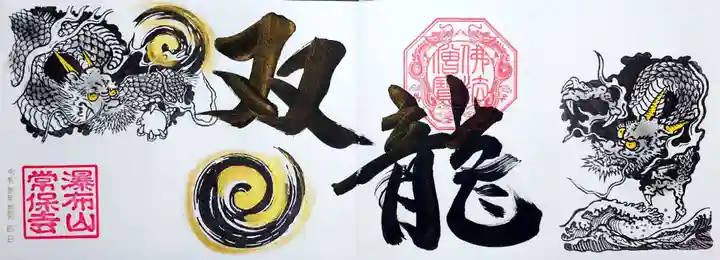 双龍
佛法
僧寶
瀑布山
常保寺